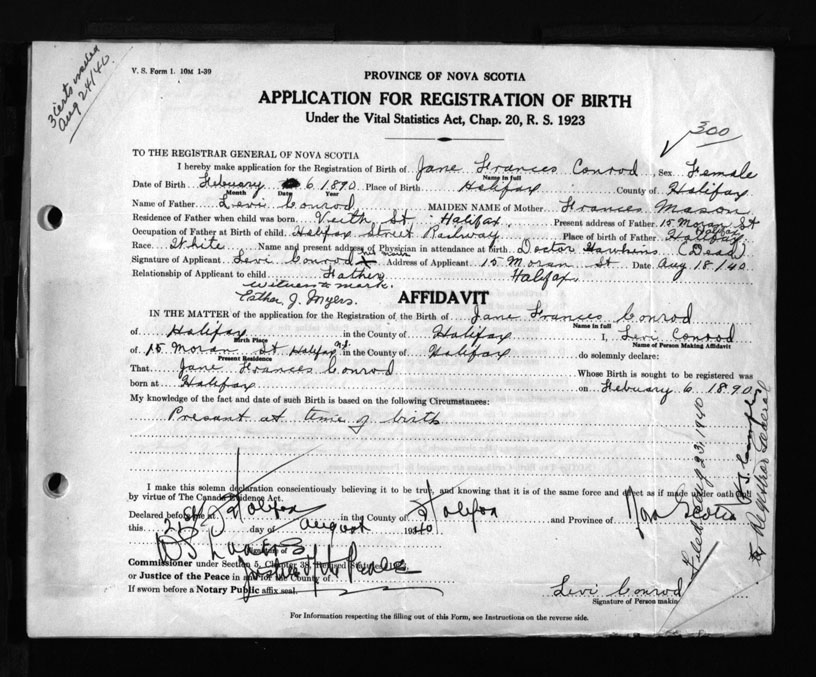 3 certs mailed
Aug 24/40.
V. S. Form 1. 10M 1-39
PROVINCE OF NOVA SCOTIA
APPLICATION FOR REGISTRATION OF BIRTH
Under the Vital Statistics Act, Chap. 20, R. S. 1923
300
TO THE REGISTRAR GENERAL OF NOVA SCOTIA
I hereby make application for the Registration of Birth of Jane Frances Conrod, Sex Female
Name in full
Date of Birth Febuary 6 1890. Place of Birth Halifax County of Halifax
Month Date Year
Name of Father Levi Conrod MAIDEN NAME of Mother Frances Mason
Residence of Father when child was born Veith St Halifax. Present address of Father 15 Moran St
Halifax
Occupation of Father at Birth of child Halifax Street Railway Place of birth of Father Halifax.
Race White Name and present address of Physician in attendance at birth Doctor Hawkins (Dead)
Signature of Applicant Levi Conrod his X mark Address of Applicant 15 Moran St Date Aug 18/40
Relationship of Applicant to child Father Halifax
Witness to mark.
Esther J. Myers.
AFFIDAVIT
IN THE MATTER of the application for the Registration of the Birth of Jane Frances Conrod
Name in full
of Halifax in the County of Halifax I, Levi Conrod
Birth Place Name of Person Making Affidavit
of 15 Moran St Halifax in the County of Halifax do solemnly declare:
Present Residence
That Jane Frances Conrod Whose Birth is sought to be registered was
born at Halifax on Febuary 6 1890
My knowledge of the fact and date of such Birth is based on the following Circumstances:
Presant at time of birth
I make this solemn declaration conscientiously believing it to be true, and knowing that it is of the same force and effect as if made under oath and
by virtue of The Canada Evidence Act.
Declared before me at Halifax in the County of Halifax and Province of Nova Scotia
this 21st day of August 1940
Justice of the Peace
Commissioner under Section 5, Chapter 38, Revised Statutes
or Justice of the Peace in and for the County of
If sworn before a Notary Public affix seal.
Levi Conrod
Signature of Person making
For Information respecting the filling out of this Form, see Instructions on the reverse side.
Filed Aug 23, 1940
Registrar General